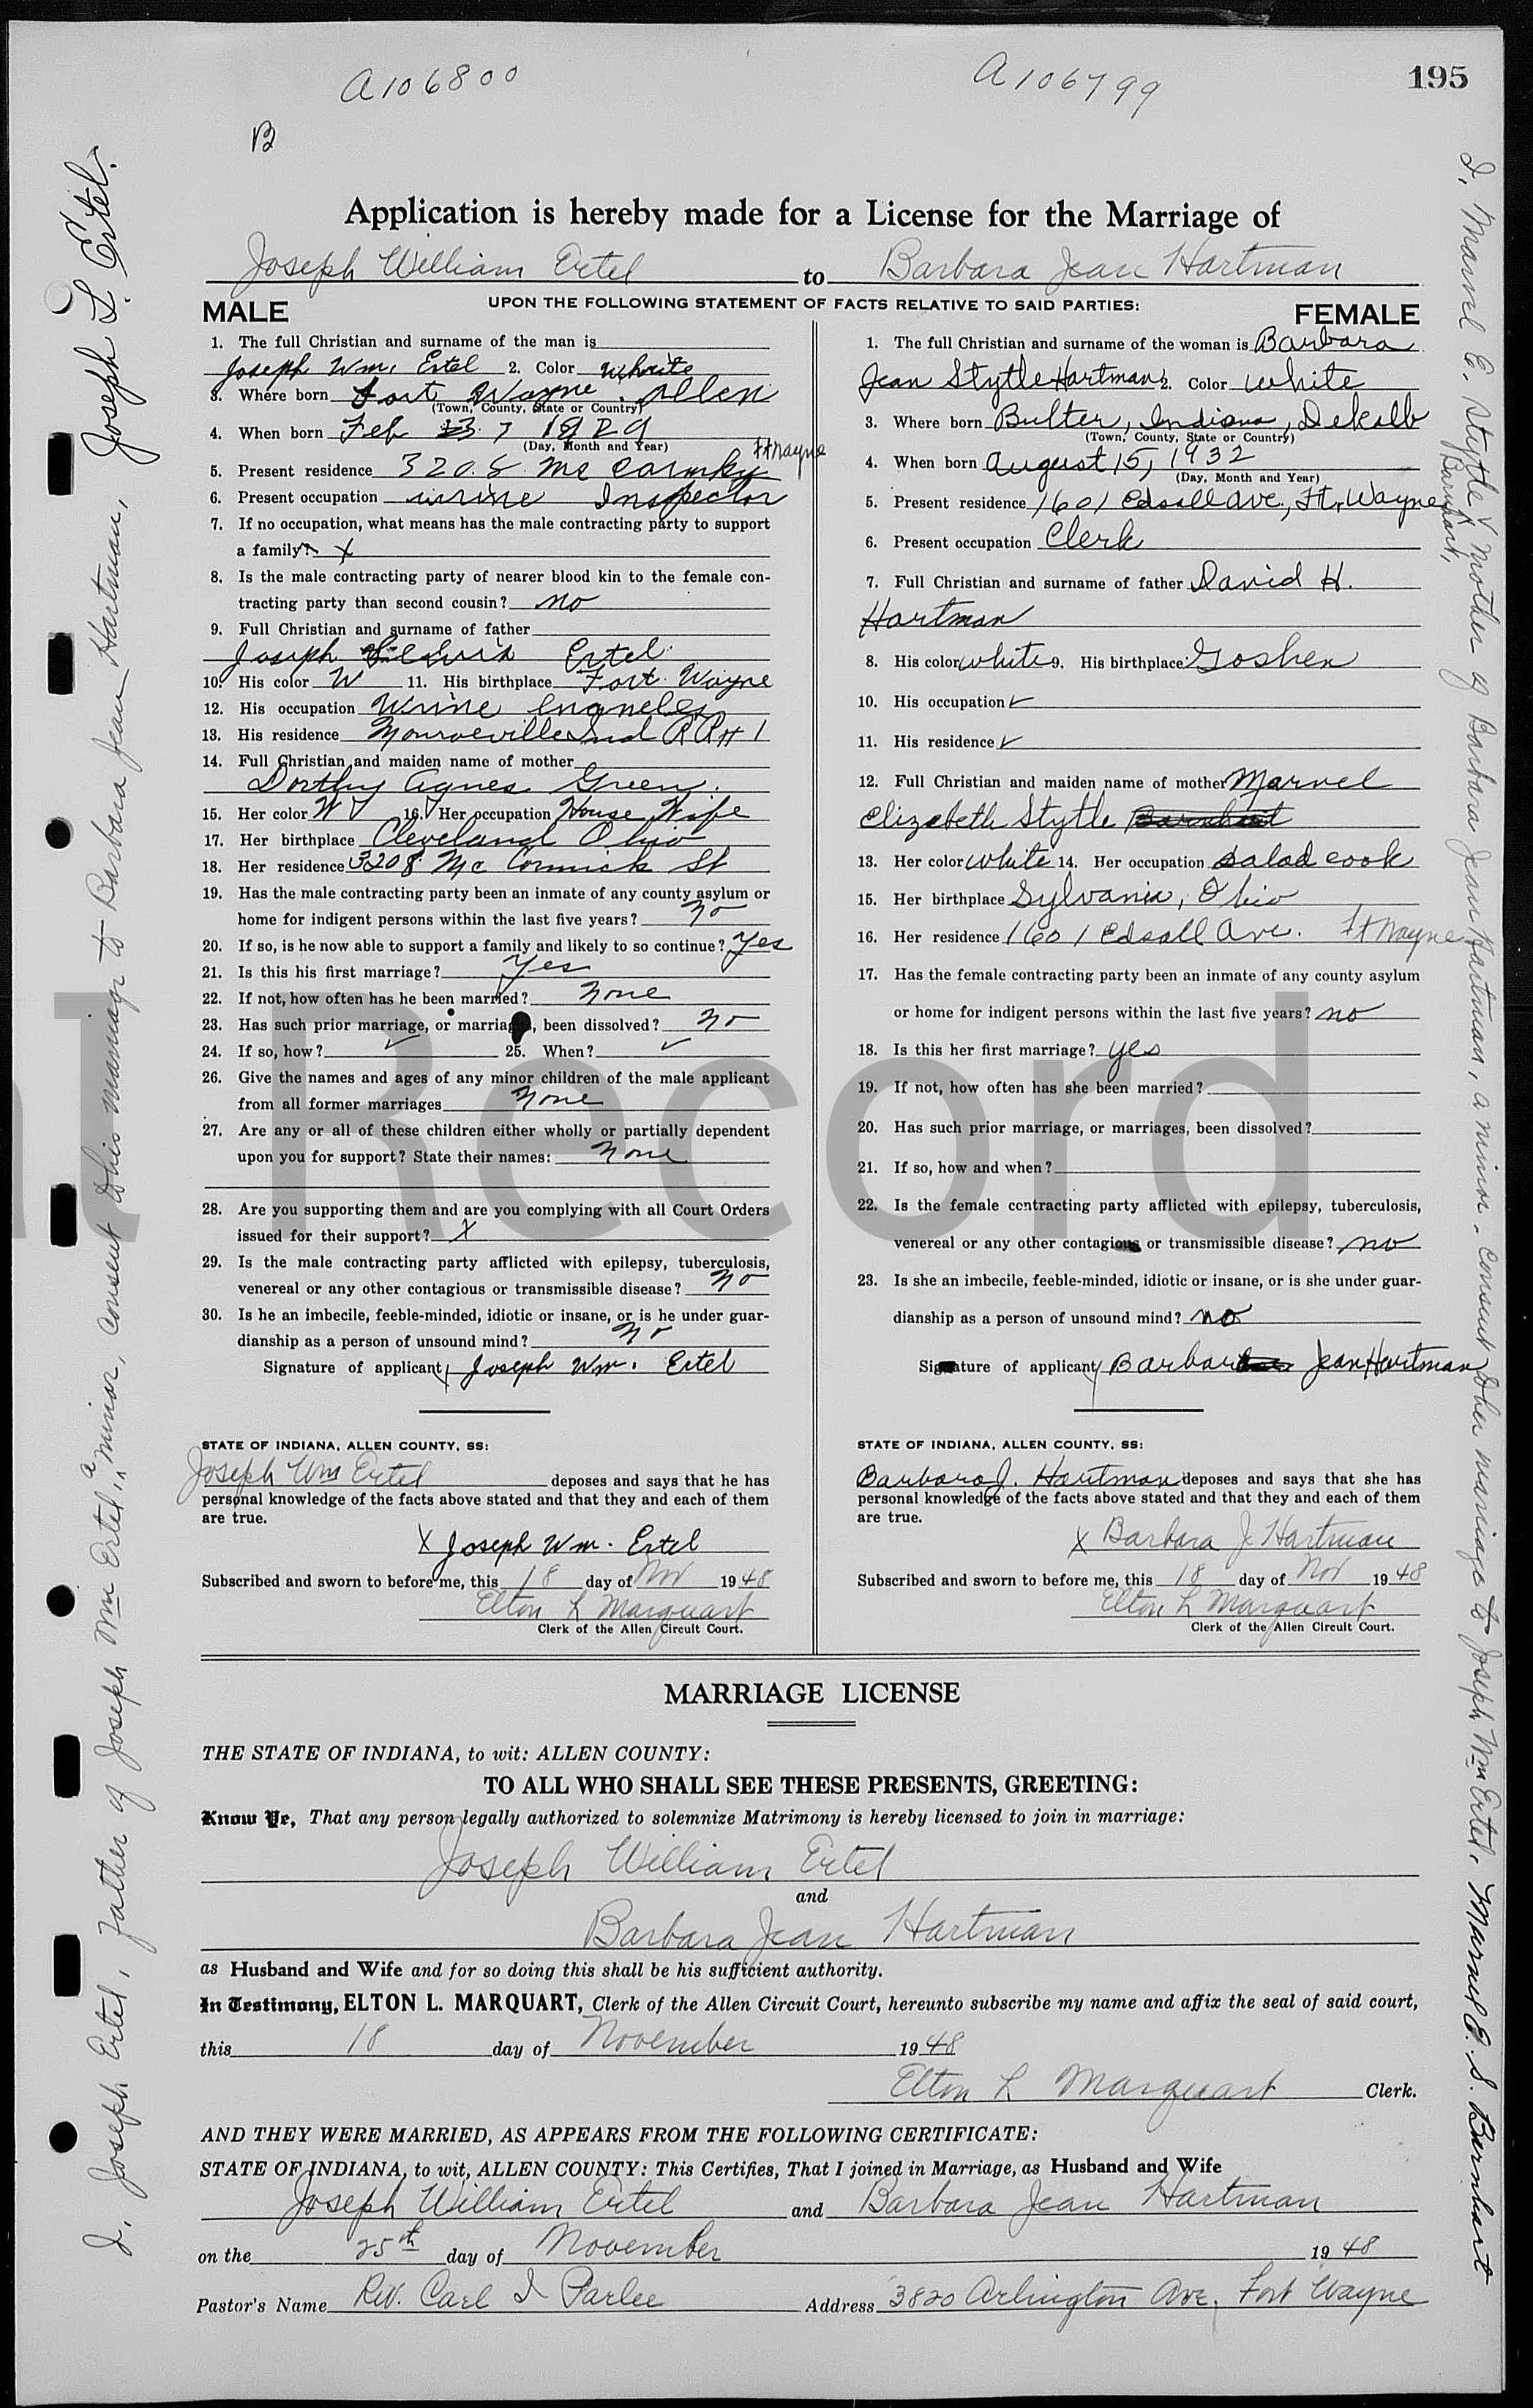 A106800
A106799
195
B
Application is hereby made for a License for the Marriage of
Joseph William Ertel to Barbara Jean Hartman
UPON THE FOLLOWING STATEMENT OF FACTS RELATIVE TO SAID PARTIES:
MALE
1. The full Christian and surname of the man is
Joseph Wm. Ertel 2. Color white
3. Where born Fort Wayne. Allen
(Town, County, State or Country)
4. When born Feb 7 1929
(Day, Month and Year)
Ft Wayne
5. Present residence 3208
6. Present occupation Inspector
7. If no occupation, what means has the male contracting party to support
a family? x
8. Is the male contracting party of nearer blood kin to the female con-
tracting party than second cousin? no
9. Full Christian and surname of father
Joseph Ertel
10. His color W 11. His birthplace Fort Wayne
12. His occupation
13. His residence Monroeville Ind RR# 1
14. Full Christian and maiden name of mother
Dorthy Agnes Green.
15. Her color W 16. Her occupation House Wife
17. Her birthplace Cleveland Ohio
18. Her residence 3208 Mc Cormick St
19. Has the male contracting party been an inmate of any county asylum or
home for indigent persons within the last five years? no
20. If so, is he now able to support a family and likely to so continue? Yes
21. Is this his first marriage? Yes
22. If not, how often has he been married? None
23. Has such prior marriage, or marriages, been dissolved? no
24. If so, how? ✓ 25. When? ✓
26. Give the names and ages of any minor children of the male applicant
from all former marriages None
27. Are any or all of these children either wholly or partially dependent
upon you for support? State their names: None
28. Are you supporting them and are you complying with all Court Orders
issued for their support? X
29. Is the male contracting party afflicted with epilepsy, tuberculosis,
venereal or any other contagious or transmissible disease? no
30. Is he an imbecile, feeble-minded, idiotic or insane, or is he under guar-
dianship as a person of unsound mind? no
Signature of applicant Joseph Wm. Ertel
STATE OF INDIANA, ALLEN COUNTY, SS:
Joseph Wm Ertel deposes and says that he has
personal knowledge of the facts above stated and that they and each of them
are true.
X Joseph Wm. Ertel
Subscribed and sworn to before me, this 18 day of Nov 1948
Elton L Marquart
Clerk of the Allen Circuit Court.
FEMALE
1. The full Christian and surname of the woman is Barbara
Jean Stytle Hartman 2. Color white
3. Where born Butler, Indiana, Dekalb
(Town, County, State or Country)
4. When born August 15, 1932
(Day, Month and Year)
5. Present residence 1601 Edsall Ave., Ft. Wayne
6. Present occupation Clerk
7. Full Christian and surname of father David H.
Hartman
8. His color white 9. His birthplace Goshen
10. His occupation ✓
11. His residence ✓
12. Full Christian and maiden name of mother Marvel
Elizabeth Stytle Barnhart
13. Her color white 14. Her occupation salad cook
15. Her birthplace Sylvania, Ohio
16. Her residence 1601 Edsall Ave. Ft Wayne
17. Has the female contracting party been an inmate of any county asylum
or home for indigent persons within the last five years? no
18. Is this her first marriage? yes
19. If not, how often has she been married?
20. Has such prior marriage, or marriages, been dissolved?
21. If so, how and when?
22. Is the female contracting party afflicted with epilepsy, tuberculosis,
venereal or any other contagious or transmissible disease? no
23. Is she an imbecile, feeble-minded, idiotic or insane, or is she under guar-
dianship as a person of unsound mind? no
Signature of applicant Barbara Jean Hartman
STATE OF INDIANA, ALLEN COUNTY, SS:
Barbara J. Hartman deposes and says that she has
personal knowledge of the facts above stated and that they and each of them
are true.
X Barbara J Hartman
Subscribed and sworn to before me, this 18 day of Nov 1948
Elton L Marquart
Clerk of the Allen Circuit Court.
MARRIAGE LICENSE
THE STATE OF INDIANA, to wit: ALLEN COUNTY:
TO ALL WHO SHALL SEE THESE PRESENTS, GREETING:
Know Ye, That any person legally authorized to solemnize Matrimony is hereby licensed to join in marriage:
Joseph William Ertel
and
Barbara Jean Hartman
as Husband and Wife and for so doing this shall be his sufficient authority.
In Testimony, ELTON L. MARQUART, Clerk of the Allen Circuit Court, hereunto subscribe my name and affix the seal of said court,
this 18 day of November 1948
Elton L Marquart Clerk.
AND THEY WERE MARRIED, AS APPEARS FROM THE FOLLOWING CERTIFICATE:
STATE OF INDIANA, to wit, ALLEN COUNTY: This Certifies, That I joined in Marriage, as Husband and Wife
Joseph William Ertel and Barbara Jean Hartman
on the 25th day of November 1948
Pastor's Name Rev. Carl I Parlee Address 3820 Arlington Ave, Fort Wayne
I, Joseph Ertel, father of Joseph Wm Ertel, a minor, consent to his marriage to Barbara Jean Hartman, Joseph L. Ertel.
I, Marvel E. Stytle Barnhart, mother of Barbara Jean Hartman, a minor, consent to her marriage to Joseph Wm Ertel. Marvel E. S. Barnhart
Record